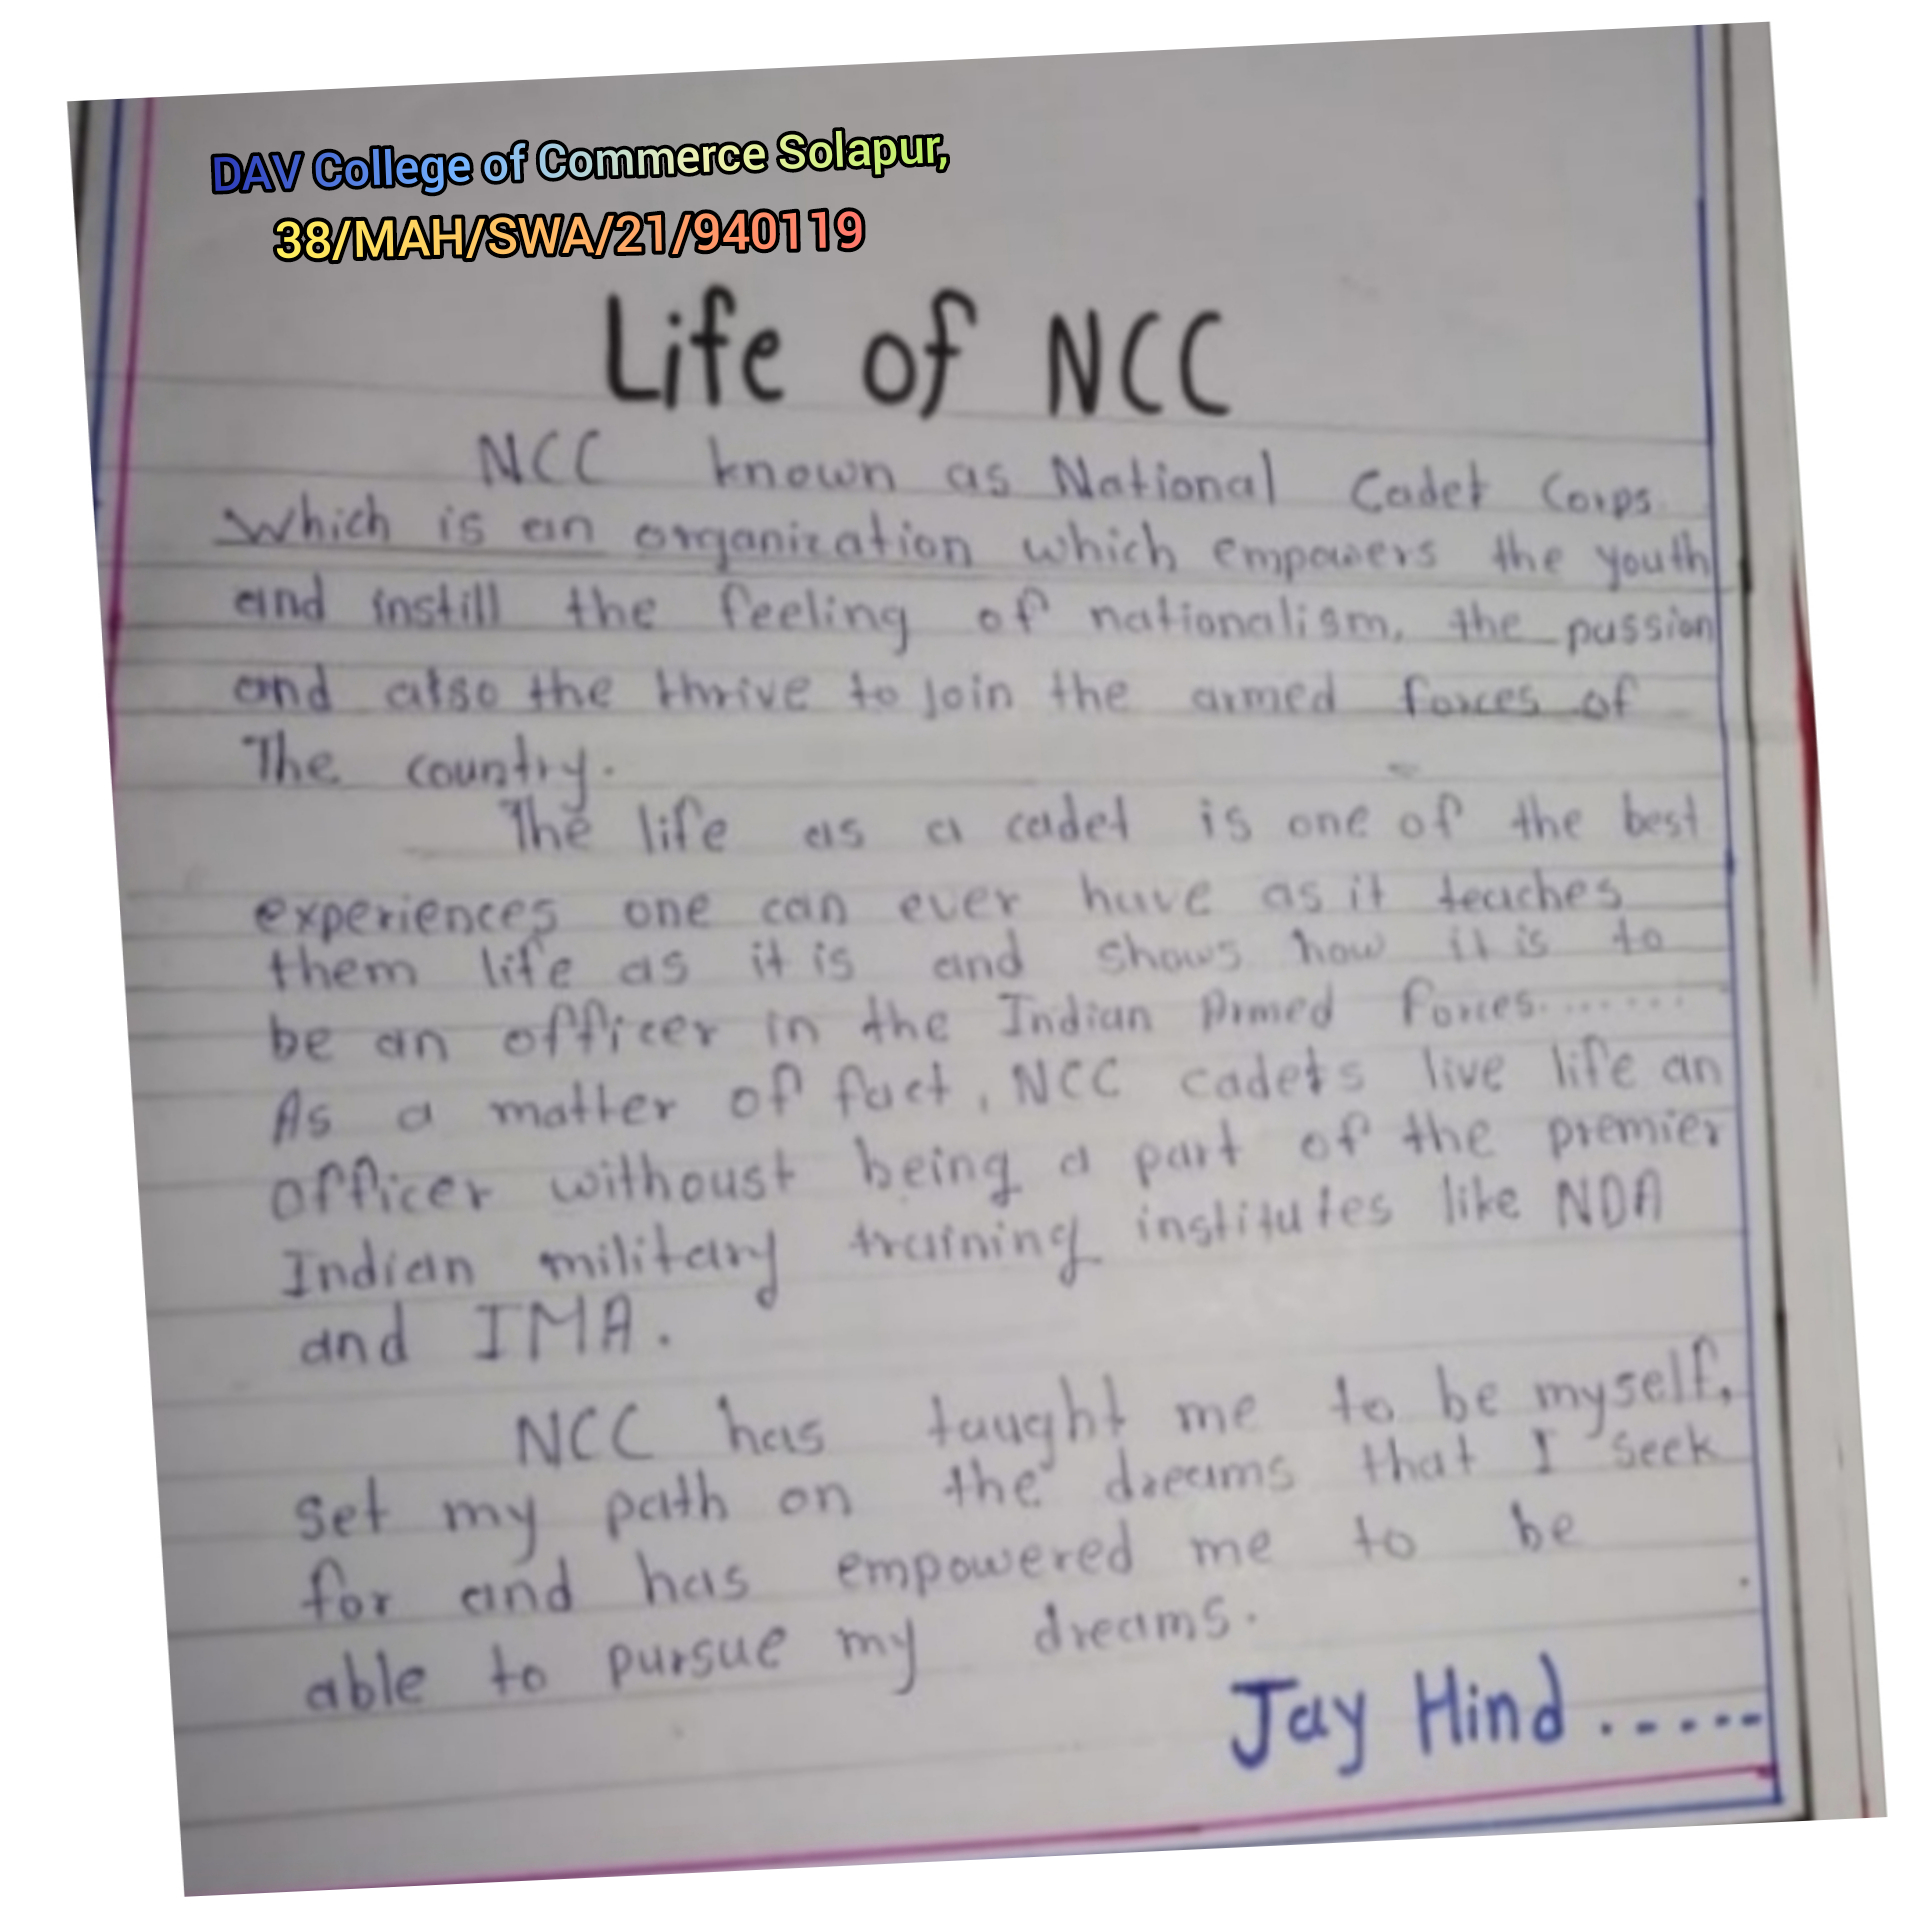 DAV College of Commerce Solapur,
38/MAH/SWA/21/940119
Life of NCC
NCC known as National Cadet Corps.
Which is an organization which empowers the youth
and instill the feeling of nationalism, the passion
and also the thrive to join the armed forces of
The country.
The life as a cadet is one of the best
experiences one can ever have as it teaches
them life as it is and shows how it is to
be an officer in the Indian Armed forces.......
As a matter of fact, NCC cadets live life an
officer withoust being a part of the premier
Indian military training institutes like NDA
and IMA.
NCC has taught me to be myself,
Set my path on the dreams that I seek
for and has empowered me to be
able to pursue my dreams.
Jay Hind .----